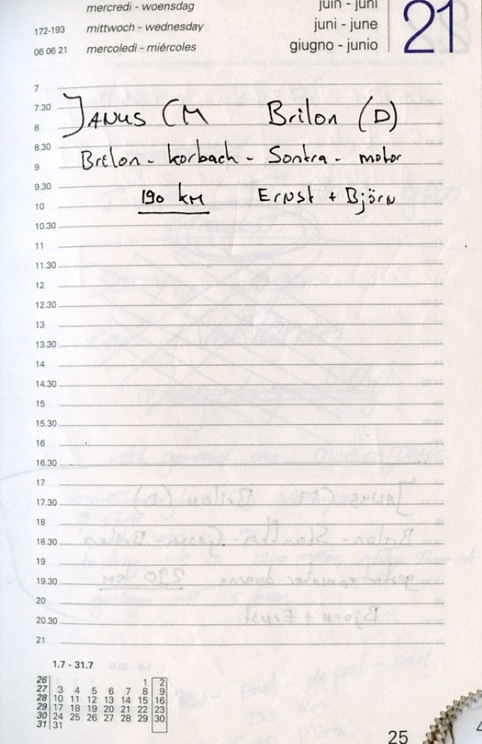 mercredi - woensdag
172-193 mittwoch - wednesday
06 06 21 mercoledì - miércoles
juin - juni
juni - june
giugno - junio
21
7
7.30
JANUS CM Brilon (D)
8
8.30
Brilon - Korbach - Sontra - motor
9
9.30
190 KM Ernst + Björn
10
10.30
11
11.30
12
12.30
13
13.30
14
14.30
15
15.30
16
16.30
17
17.30
18
18.30
19
19.30
20
20.30
21
1.7 - 31.7
26 1 2
27 3 4 5 6 7 8 9
28 10 11 12 13 14 15 16
29 17 18 19 20 21 22 23
30 24 25 26 27 28 29 30
31 31
25